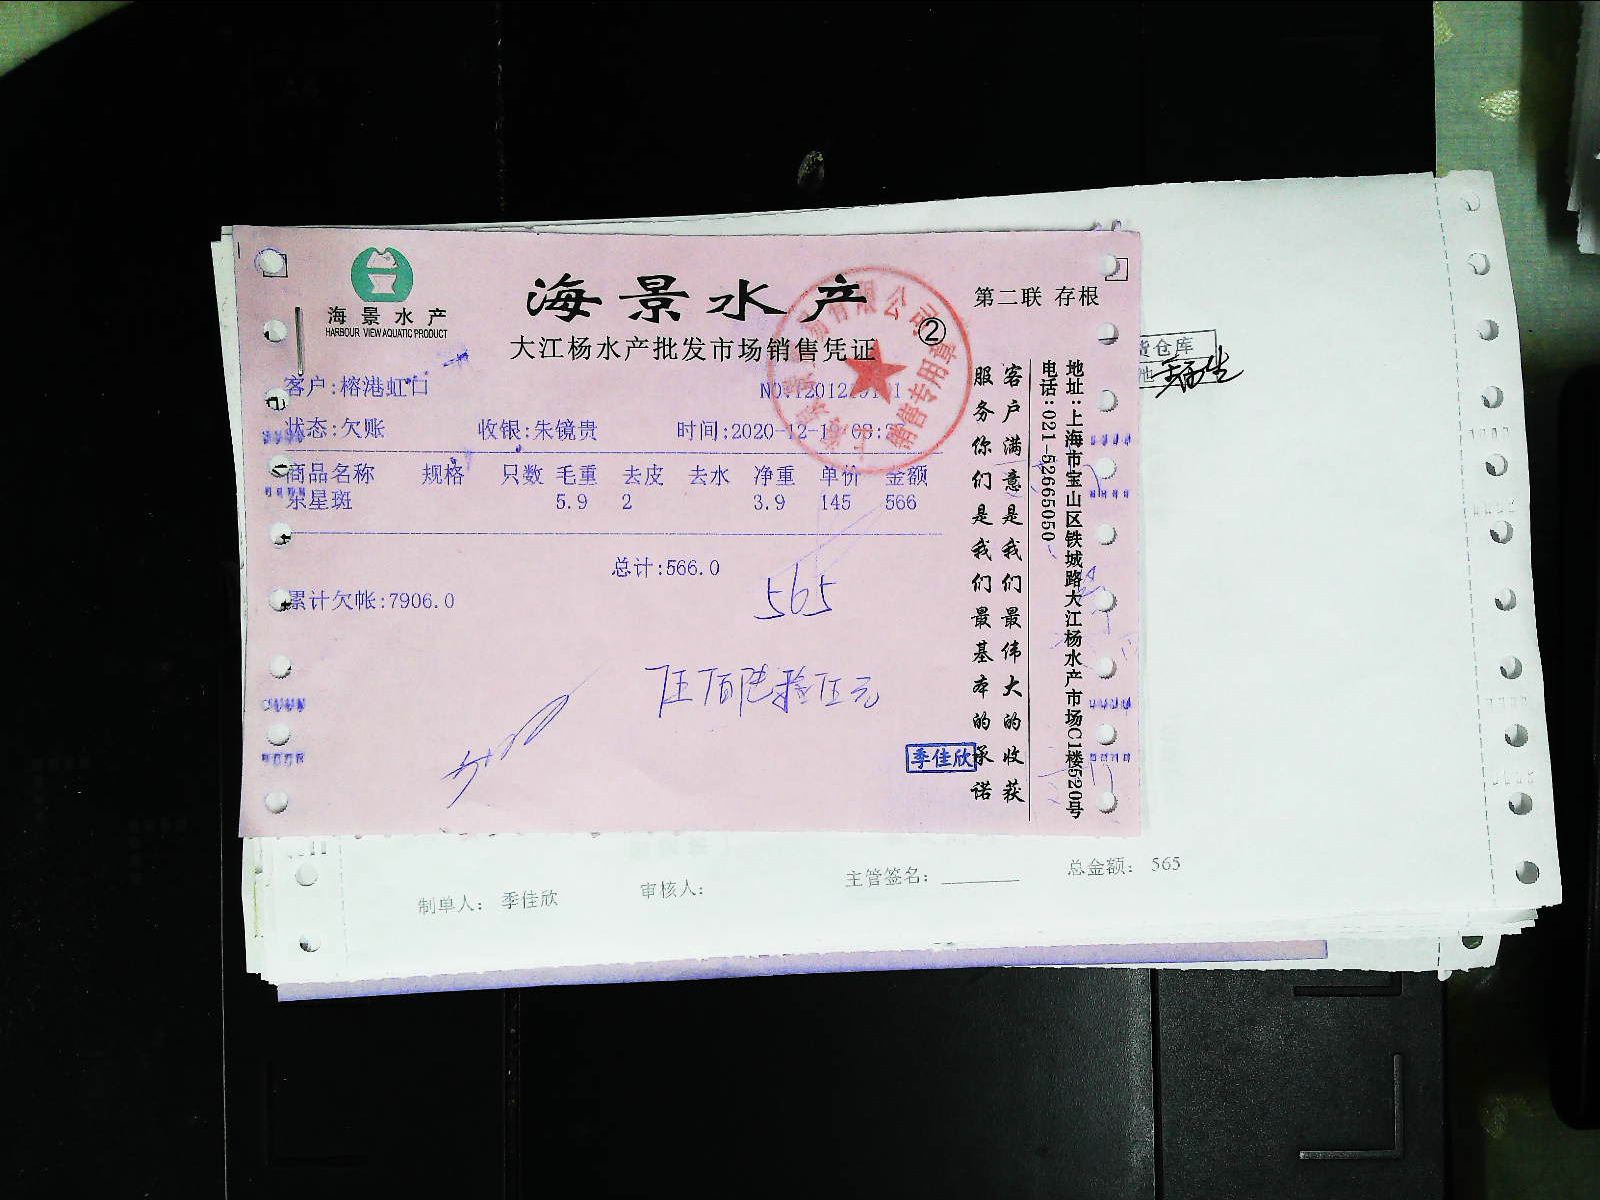 海景水产
HARBOUR VIEW AQUATIC PRODUCT
海景水产
大江杨水产批发市场销售凭证
第二联 存根
②
客户:榕港虹口
状态:欠账 收银:朱镜贵 时间:2020-12-1
商品名称 规格 只数 毛重 去皮 去水 净重 单价 金额
东星斑 5.9 2 3.9 145 566
总计:566.0
565
累计欠帐:7906.0
伍佰陆拾伍元
季佳欣
销售专用章
客户满意是我们最伟大的收获
服务你们是我们最基本的承诺
地址:上海市宝山区铁城路大江杨水产市场C1楼520号
电话:021-52665050
货仓库
制单人: 季佳欣 审核人: 主管签名: 总金额: 565